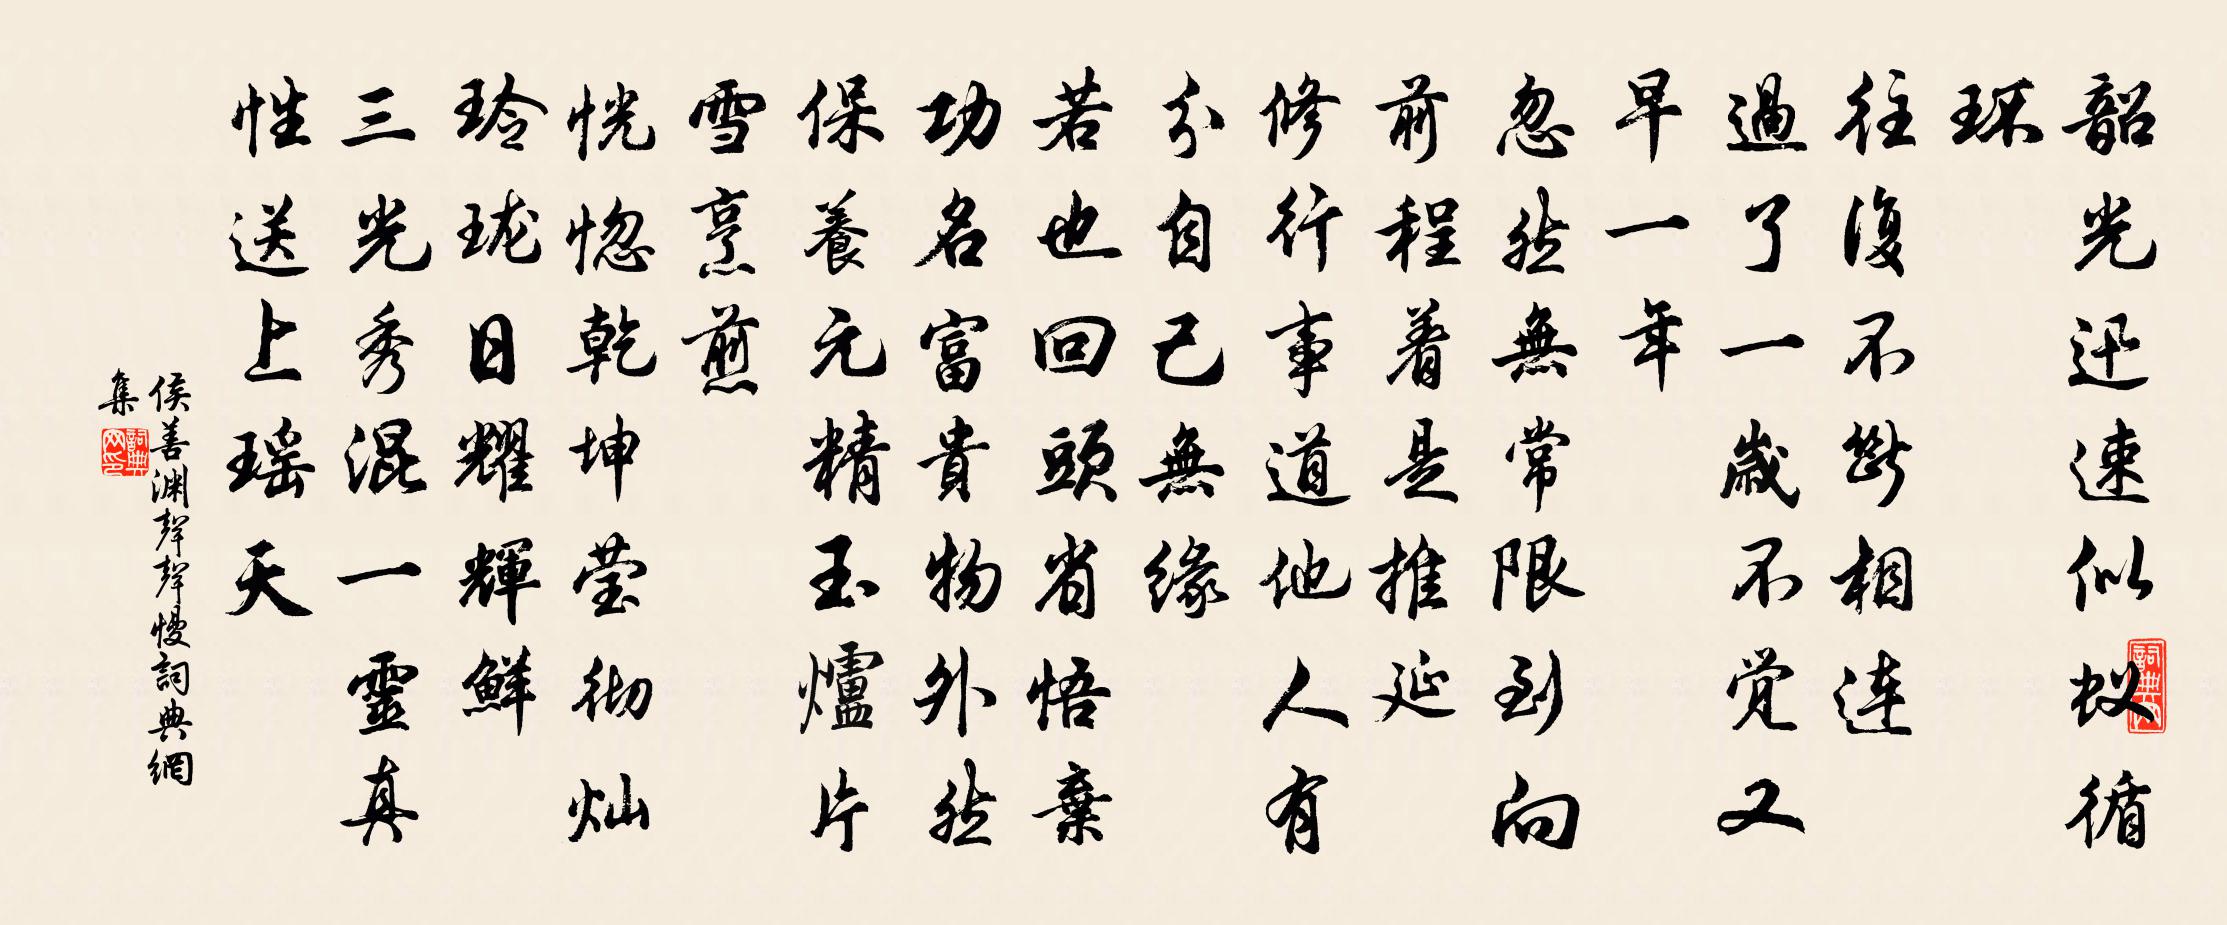 韶光迅速似蚁循
环
往復不断相连
過了一歲不觉又
早一年
忽然無常限到向
前程着是推延
修行事道他人有
分自己無缘
若也回頭省悟棄
功名富貴物外然
保養元精玉爐片
雪烹煎
恍惚乾坤莹彻灿
玲珑日耀輝鮮
三光秀混一靈真
性送上瑶天
侯善渊聲聲慢詞典網
集
詞典
詞典網印